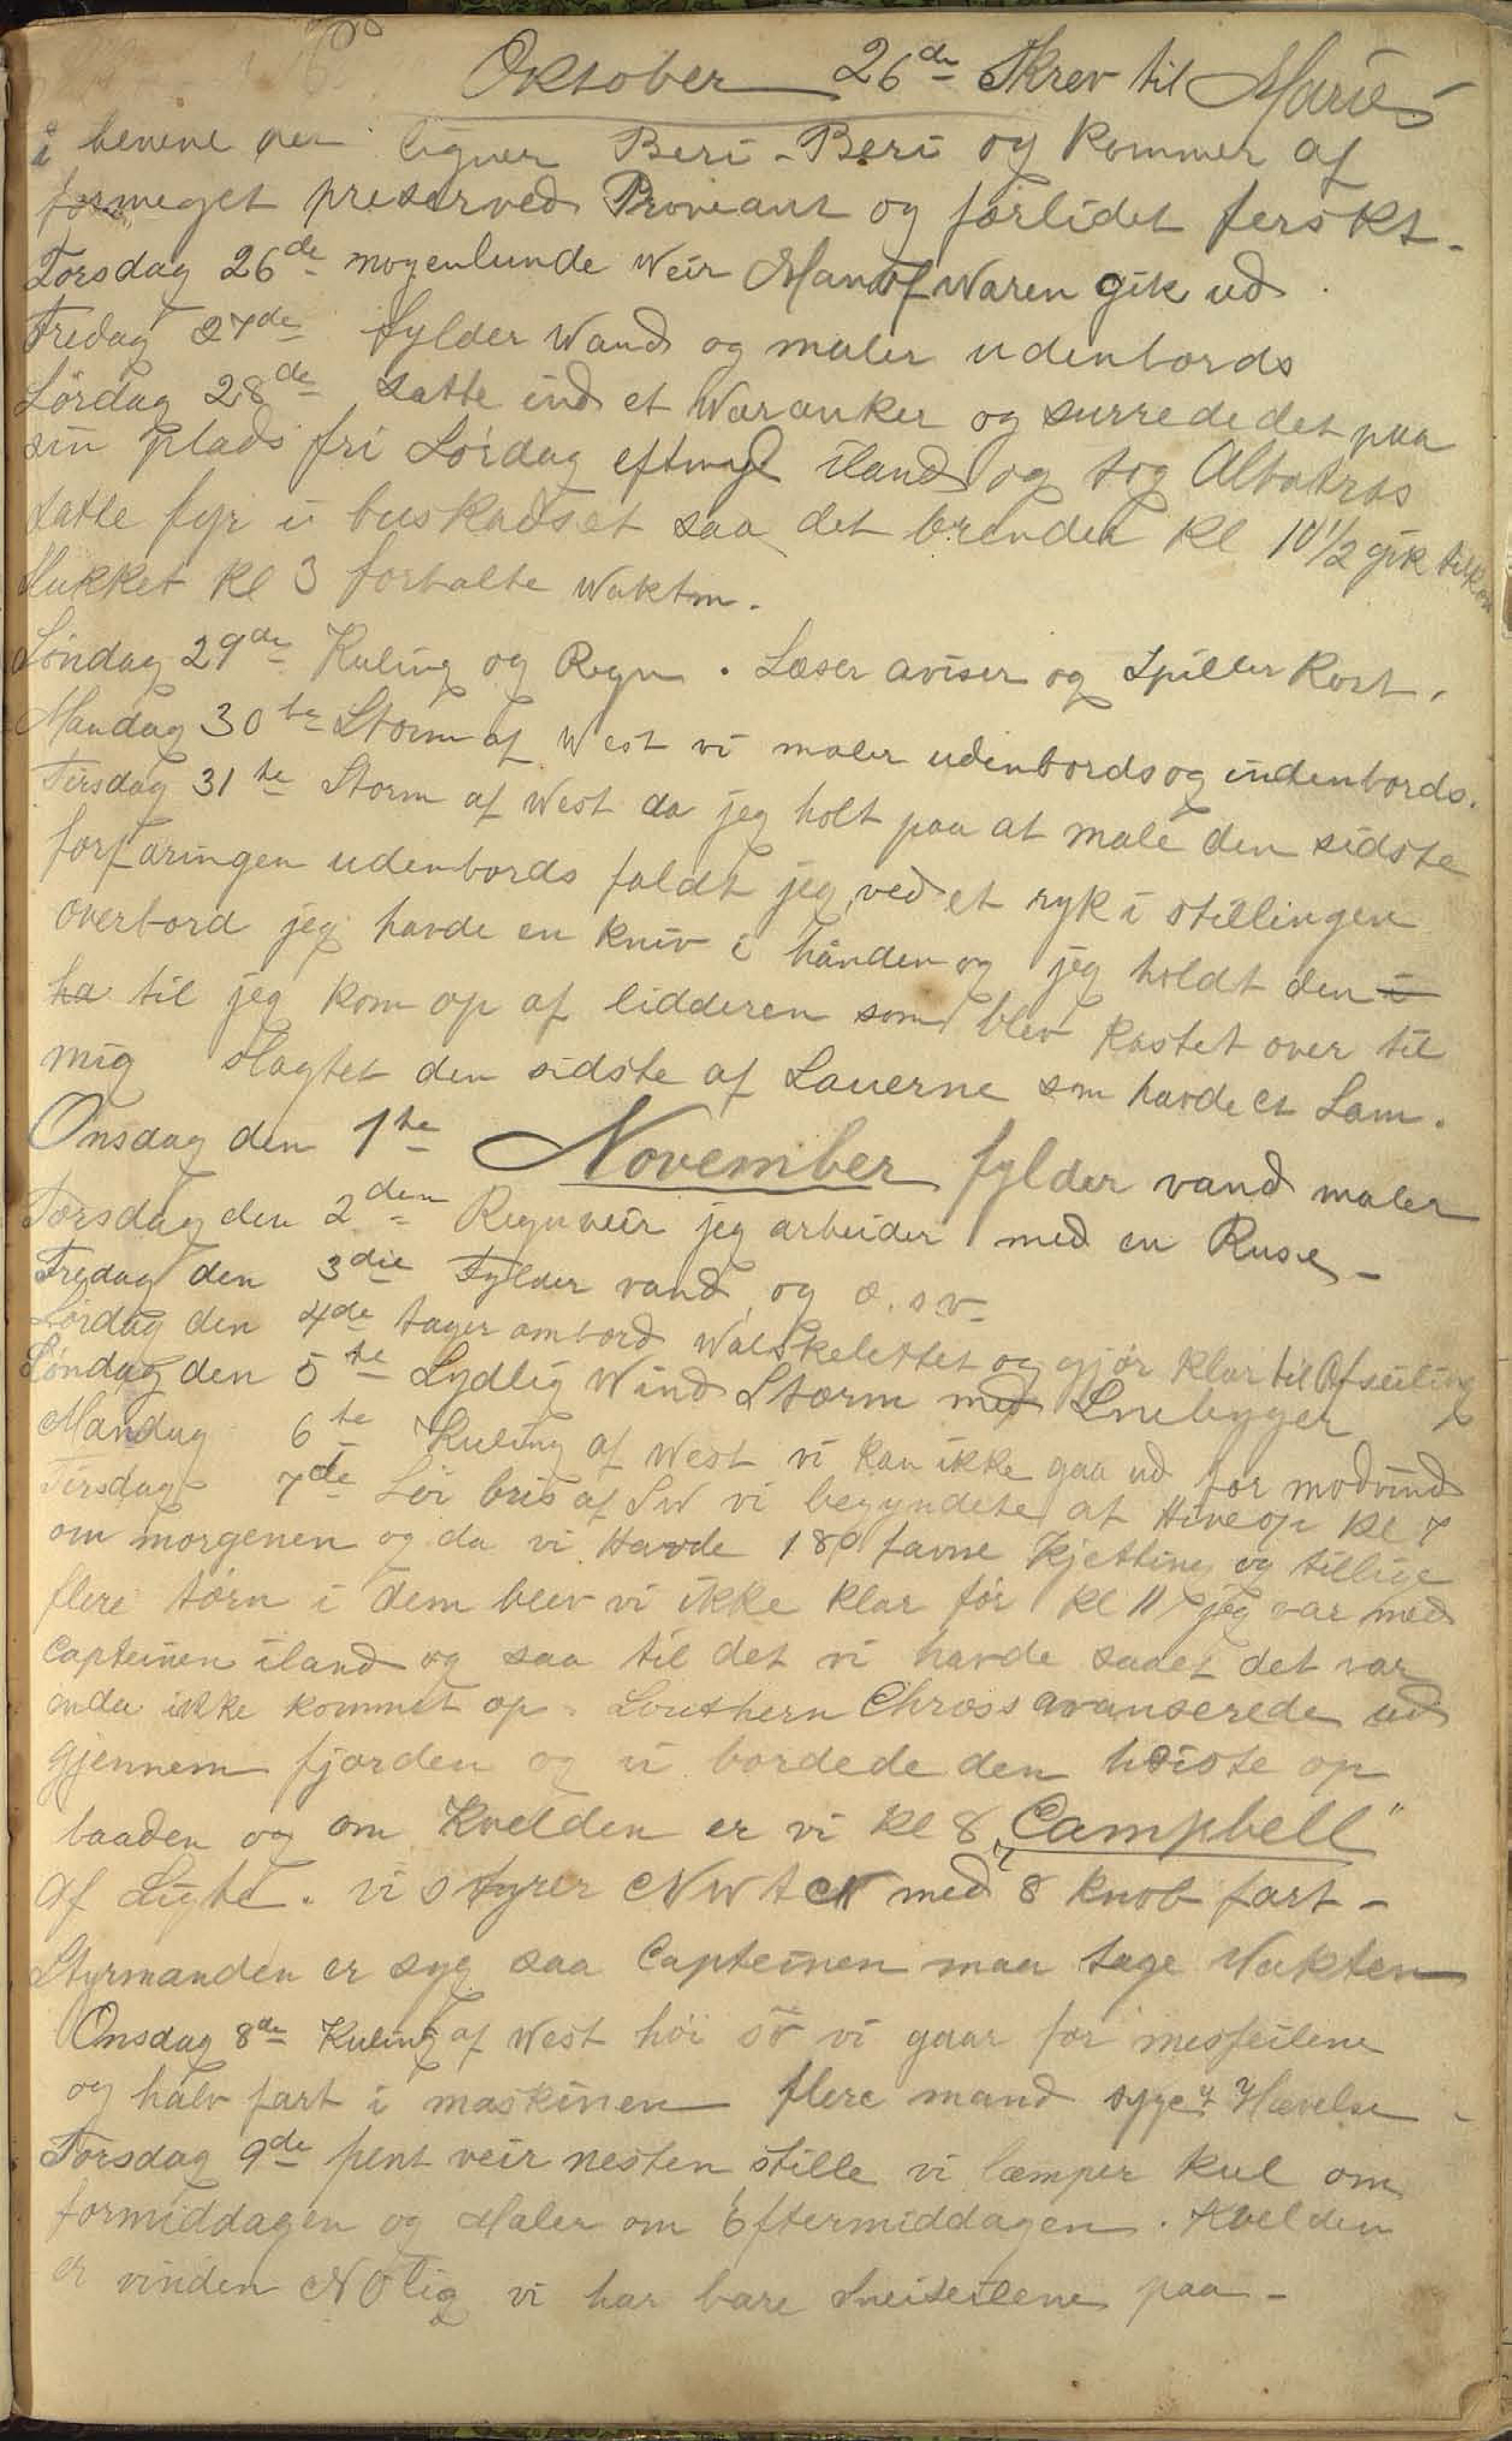 Oktober 26de Skrev til Marie
i benene der ligner Beri-Beri og kommer af
formeget preserved Proviant og forlidet ferskt.
Torsdag 26de mogenlunde Veir Man of Waren gik ud.
Fredag 27de fylder Vand og maler udenbords
Lørdag 28de satte ind et Waranker og surrede det paa
sin plads fri Lørdag eftmd iland og tog Albatros
satte fyr i buskadset saa det brender kl 10½ gik til
Klukket kl 3 forhalte Wakten.
Søndag 29de Kuling og Regn. Læser aviser og Spiller Kort.
Mandag 30te Storm af West vi maler udenbords og indenbords.
Tirsdag 31te Storm af West da jeg holt paa at male den sidste
forfaringen udenbords faldt jeg ved et ryk i stillingen
overbord jeg havde en kniv i hånden og jeg holdt den i
ha til jeg kom op af lidderen som blev kastet over til
mig slagtet den sidste af Sauerne som havde et Lam.
Onsdag den 1te November fylder vand maler
Torsdag den 2den Regnveir jeg arbeider med en Ruse-
Fredag den 3die Fylder vand og o.s.v-
Lørdag den 4de tager ombord Walskelettet og gjør klar til Afseiling
Søndag den 5te Sydlig Wind Storm med Snebyger
Mandag 6te Kuling af West vi kan ikke gaa ud for modvind
Tirsdag 7de Lei bris af SW vi begyndete at Hive op kl 7
om morgenen og da vi Havde 180 favne Kjetting og tillige
flere tørn i dem blev vi ikke klar før kl 11 jeg var med
Capteinen iland og saa til det vi havde saaet det var
enda ikke kommet op. Southern Chross avanserede ud
gjennem fjorden og vi bordede den heiste op
baaden og om Kvelden er vi kl 8 „Campbell"
af Sigte. vi styrer NW t N med 8 knob fart -
Styrmanden er syg saa Capteinen maa tage Vakten
Onsdag 8de Kuling af West høi sø vi gaar for
og halv fart i maskinen flere mand syge Hævelse -
Torsdag 9de pent veir nesten stille vi læmper kul om
formiddagen og Maler om Eftermiddagen. Kvelden
er vinden NOlig vi har bare Sneiseilene paa -